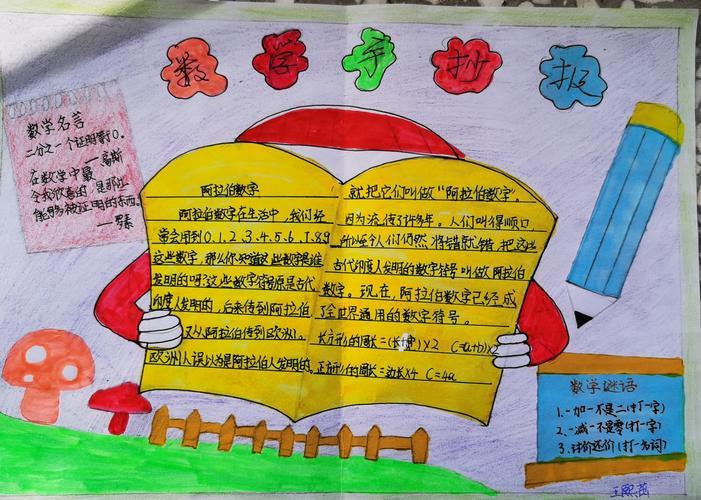 数学手抄报
数学名言
二分之一个证明等于0.
—高斯
在数学中最
令我欣喜的是那些
能够被证明的东西.
—罗素
阿拉伯数字
阿拉伯数字在生活中,我们经
常会用到0.1.2.3.4.5.6.7.8.9
这些数字,那么你知道这些数字是谁
发明的吗?这些数字符号原是古代
印度人发明的,后来传到阿拉伯
又从阿拉伯传到欧洲。
欧洲人误以为是阿拉伯人发明的,
就把它们叫做“阿拉伯数字”,
因为流传了许多年。人们叫得顺口,
所以至今人们仍然将错就错,把这些
古代印度人发明的数字符号叫做阿拉伯
数字。现在,阿拉伯数字已经成
了全世界通用的数字符号。
长方形的周长=(长+宽)×2 C=(a+b)×2
正方形的周长=边长×4 C=4a
数学谜语
1.一加一不是二(打一字)
2.一减一不是零(打一字)
3.讨价还价(打一名词)